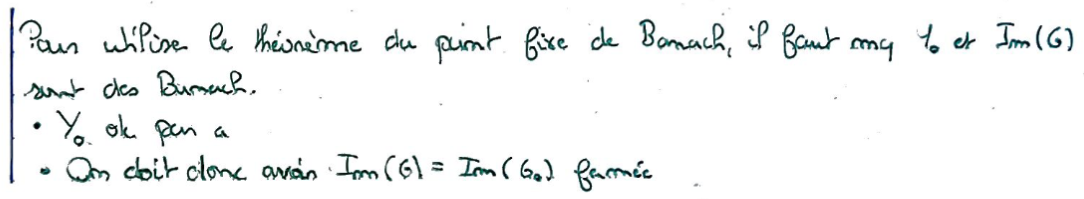 Pour utiliser le théorème du point fixe de Banach, il faut mq Y₀ et Im(G)
sont des Banach.
• Y₀ ok par a
• On doit donc avoir Im(G) = Im(G₀) fermée